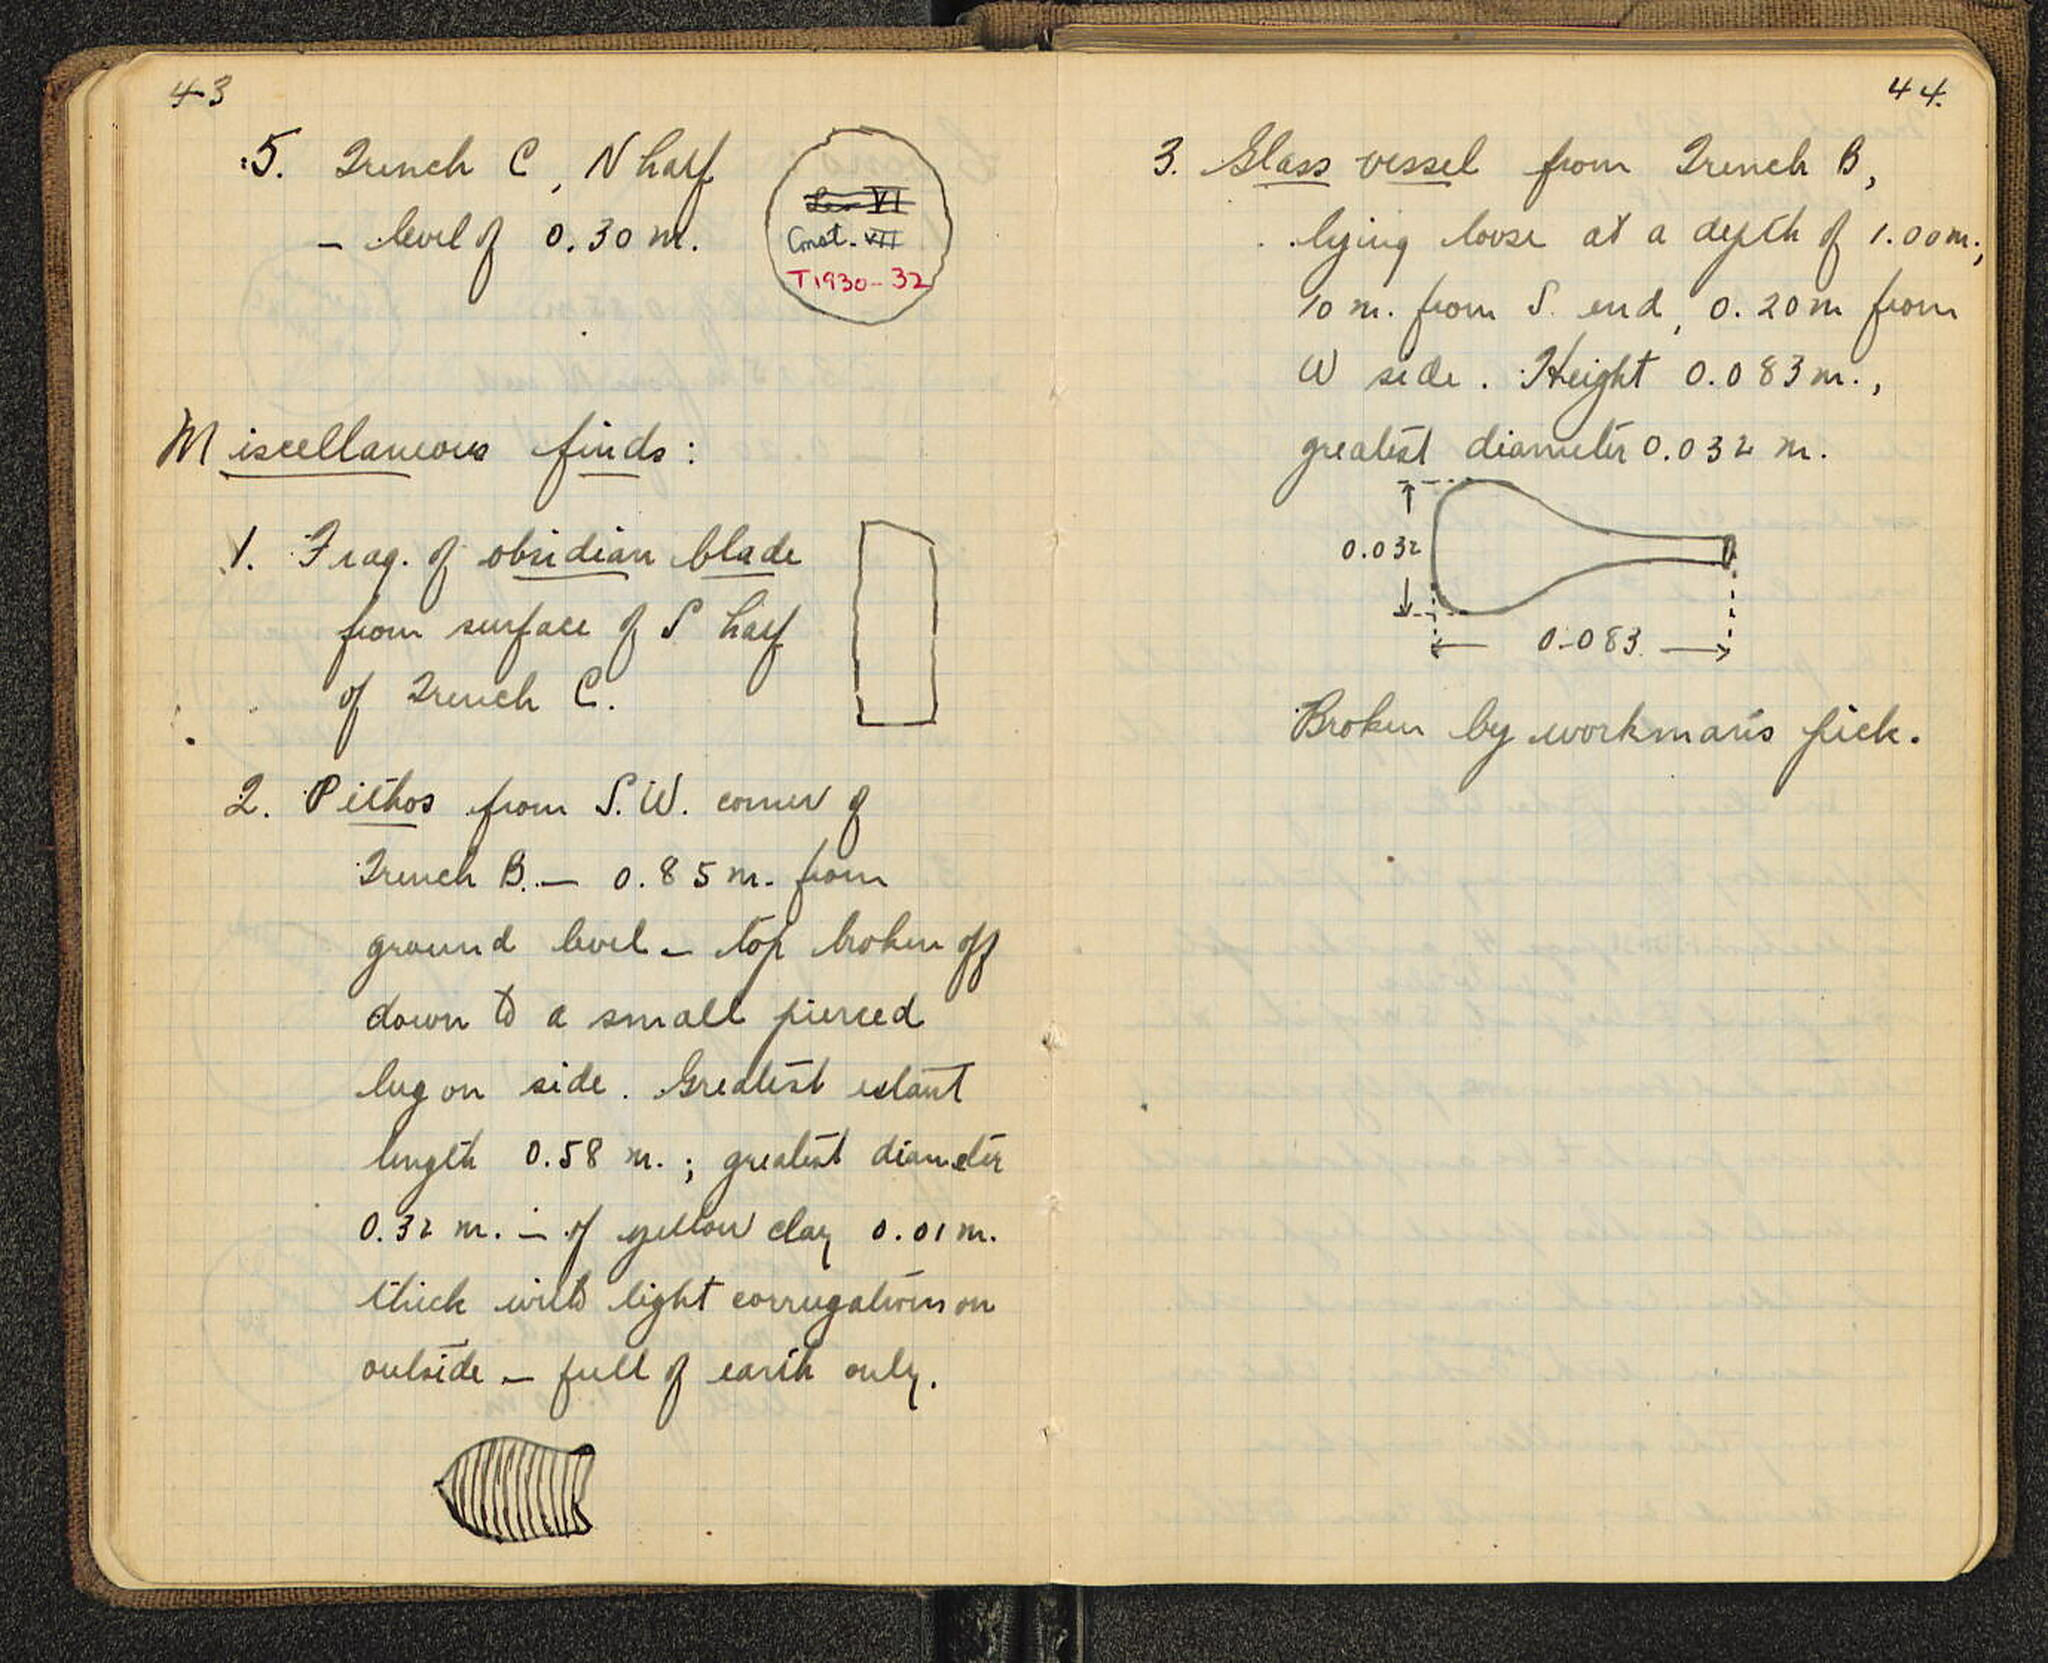 43
5. Trench C, N half
– level of 0.30 m.
Lev VI
Const. VII
T1930-32
Miscellaneous finds:
1. Frag. of obsidian blade
from surface of S half
of Trench C.
2. Pithos from S.W. corner of
Trench B. – 0.85 m. from
ground level – top broken off
down to a small pierced
lug on side. Greatest extant
length 0.58 m.; greatest diameter
0.32 m. – of yellow clay 0.01 m.
thick with light corrugations on
outside – full of earth only.
44.
3. Glass vessel from Trench B,
lying loose at a depth of 1.00 m.,
10 m. from S. end, 0.20 m from
W side. Height 0.083 m.,
greatest diameter 0.032 m.
0.032
0.083
Broken by workman's pick.